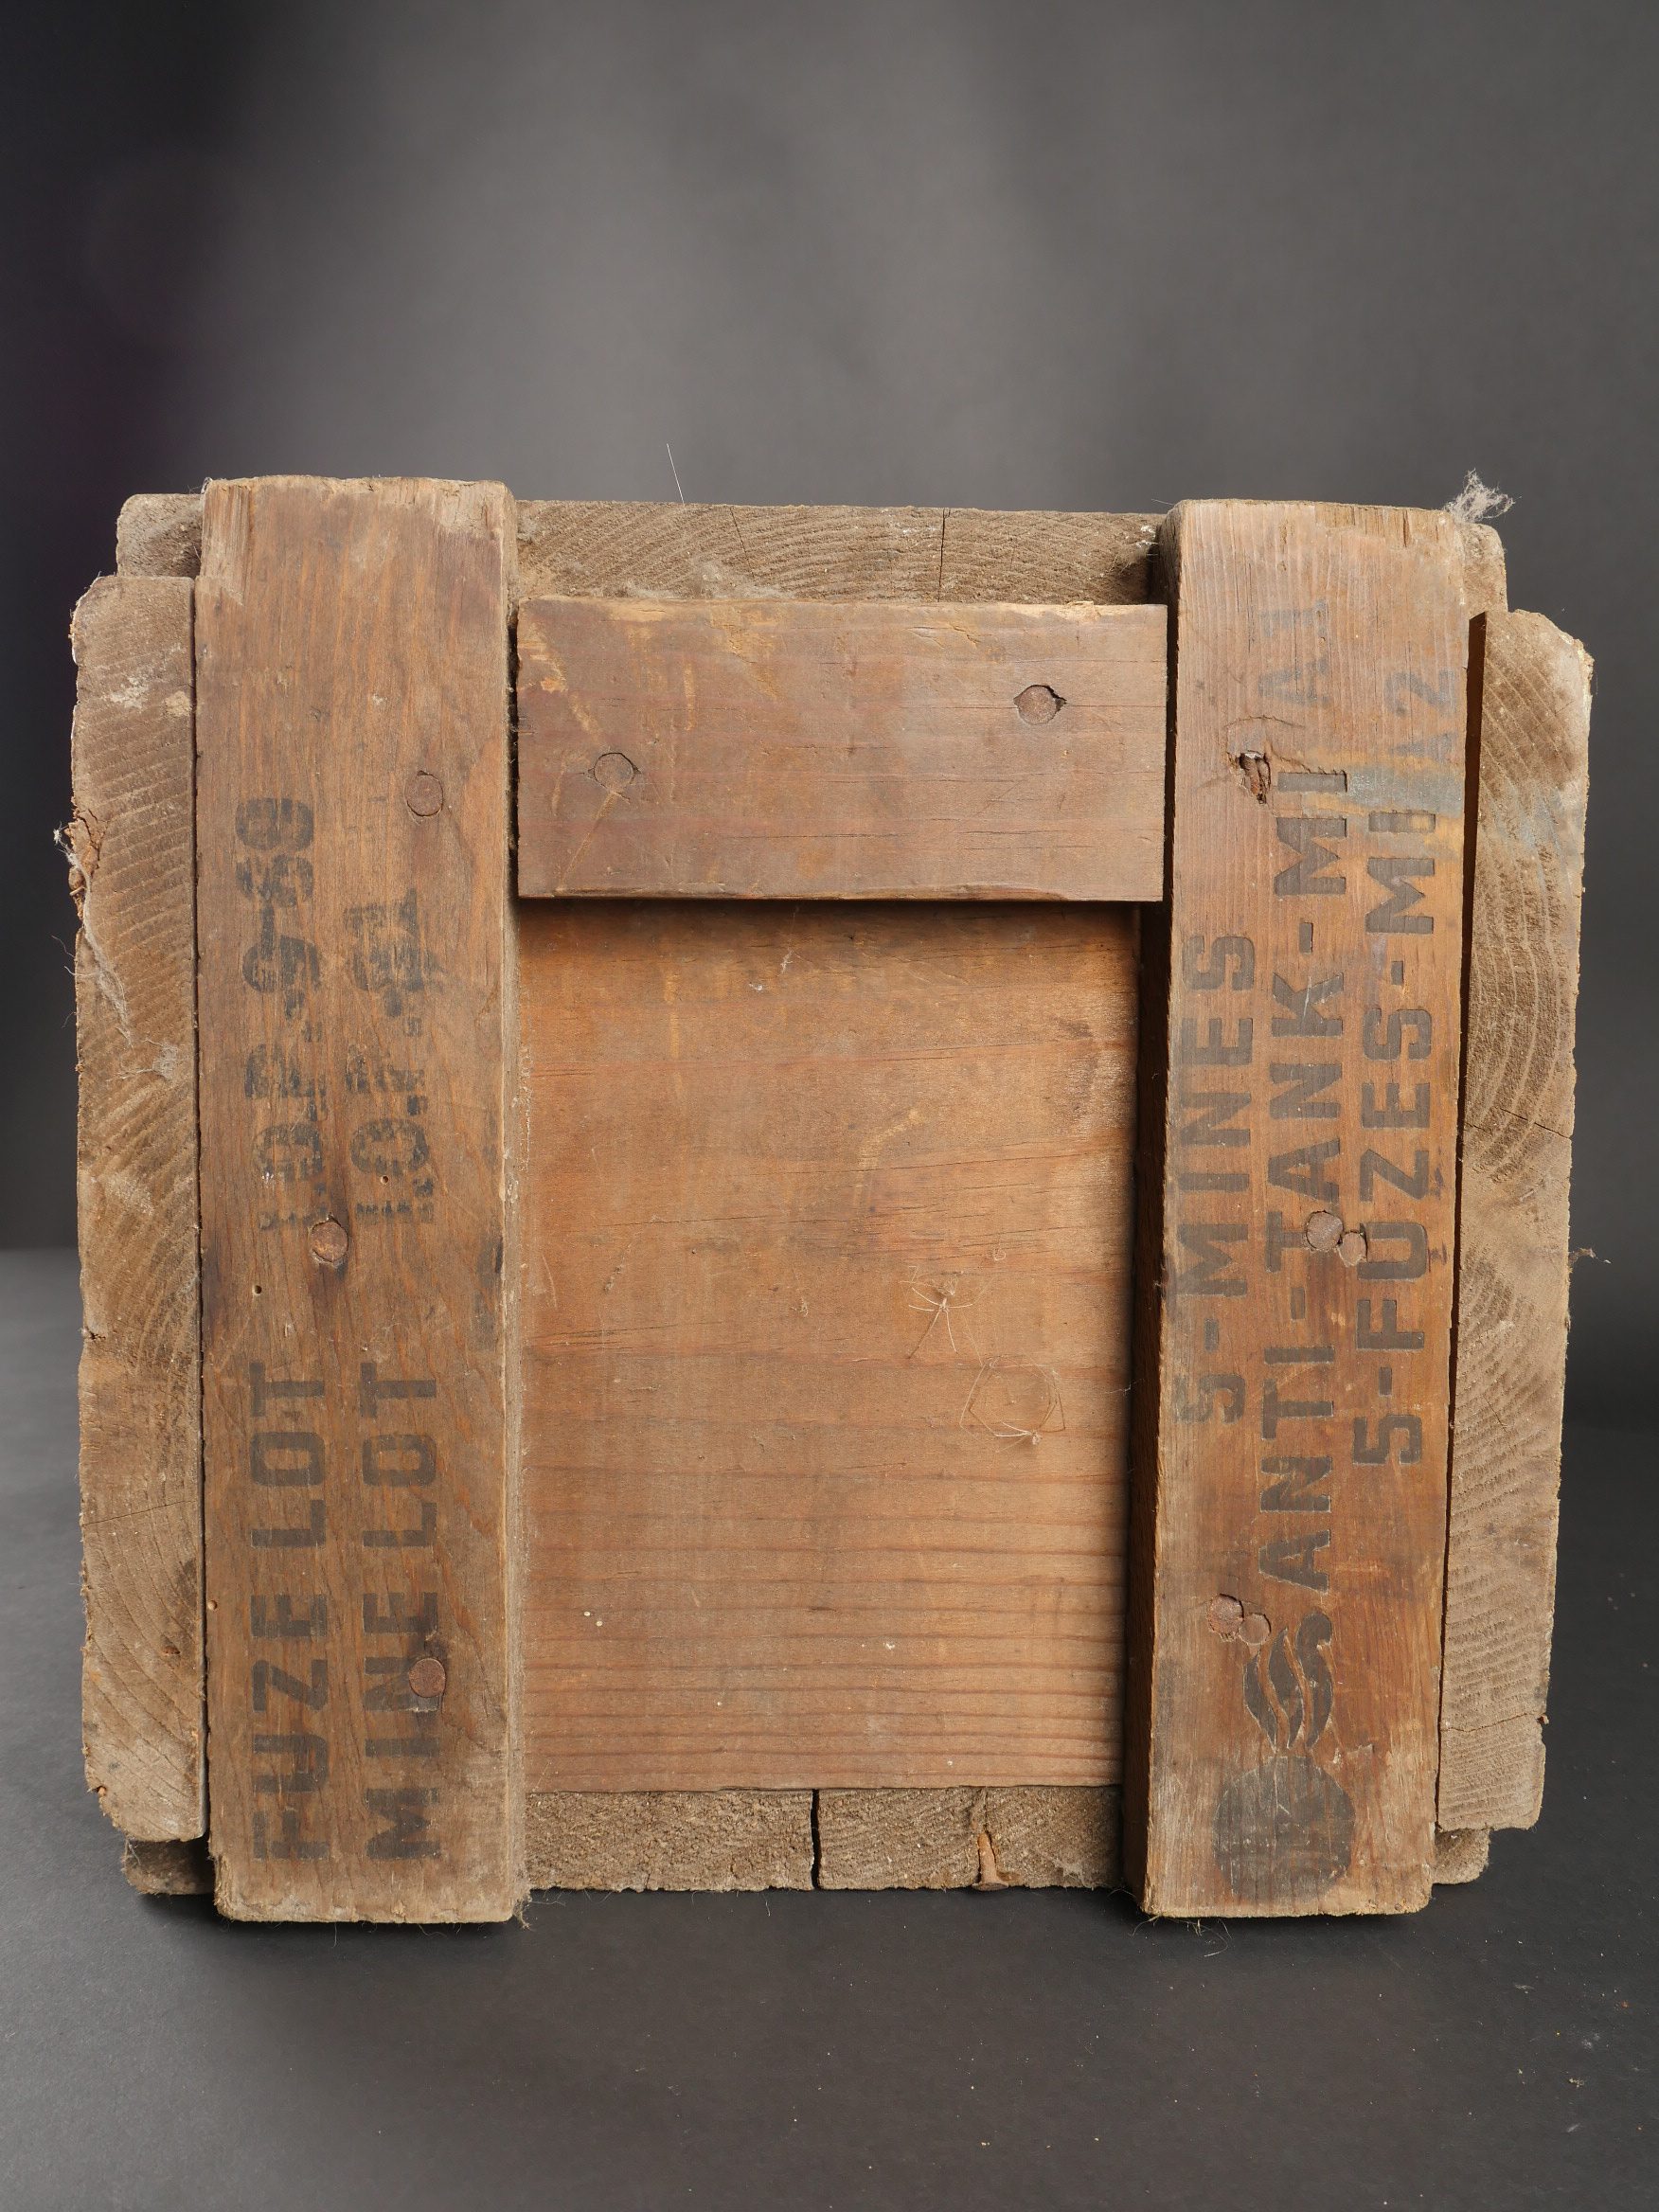 FUZE LOT
MINE LOT
5-MINES
ANTI-TANK-MI A1
5-FUZES-MI A2